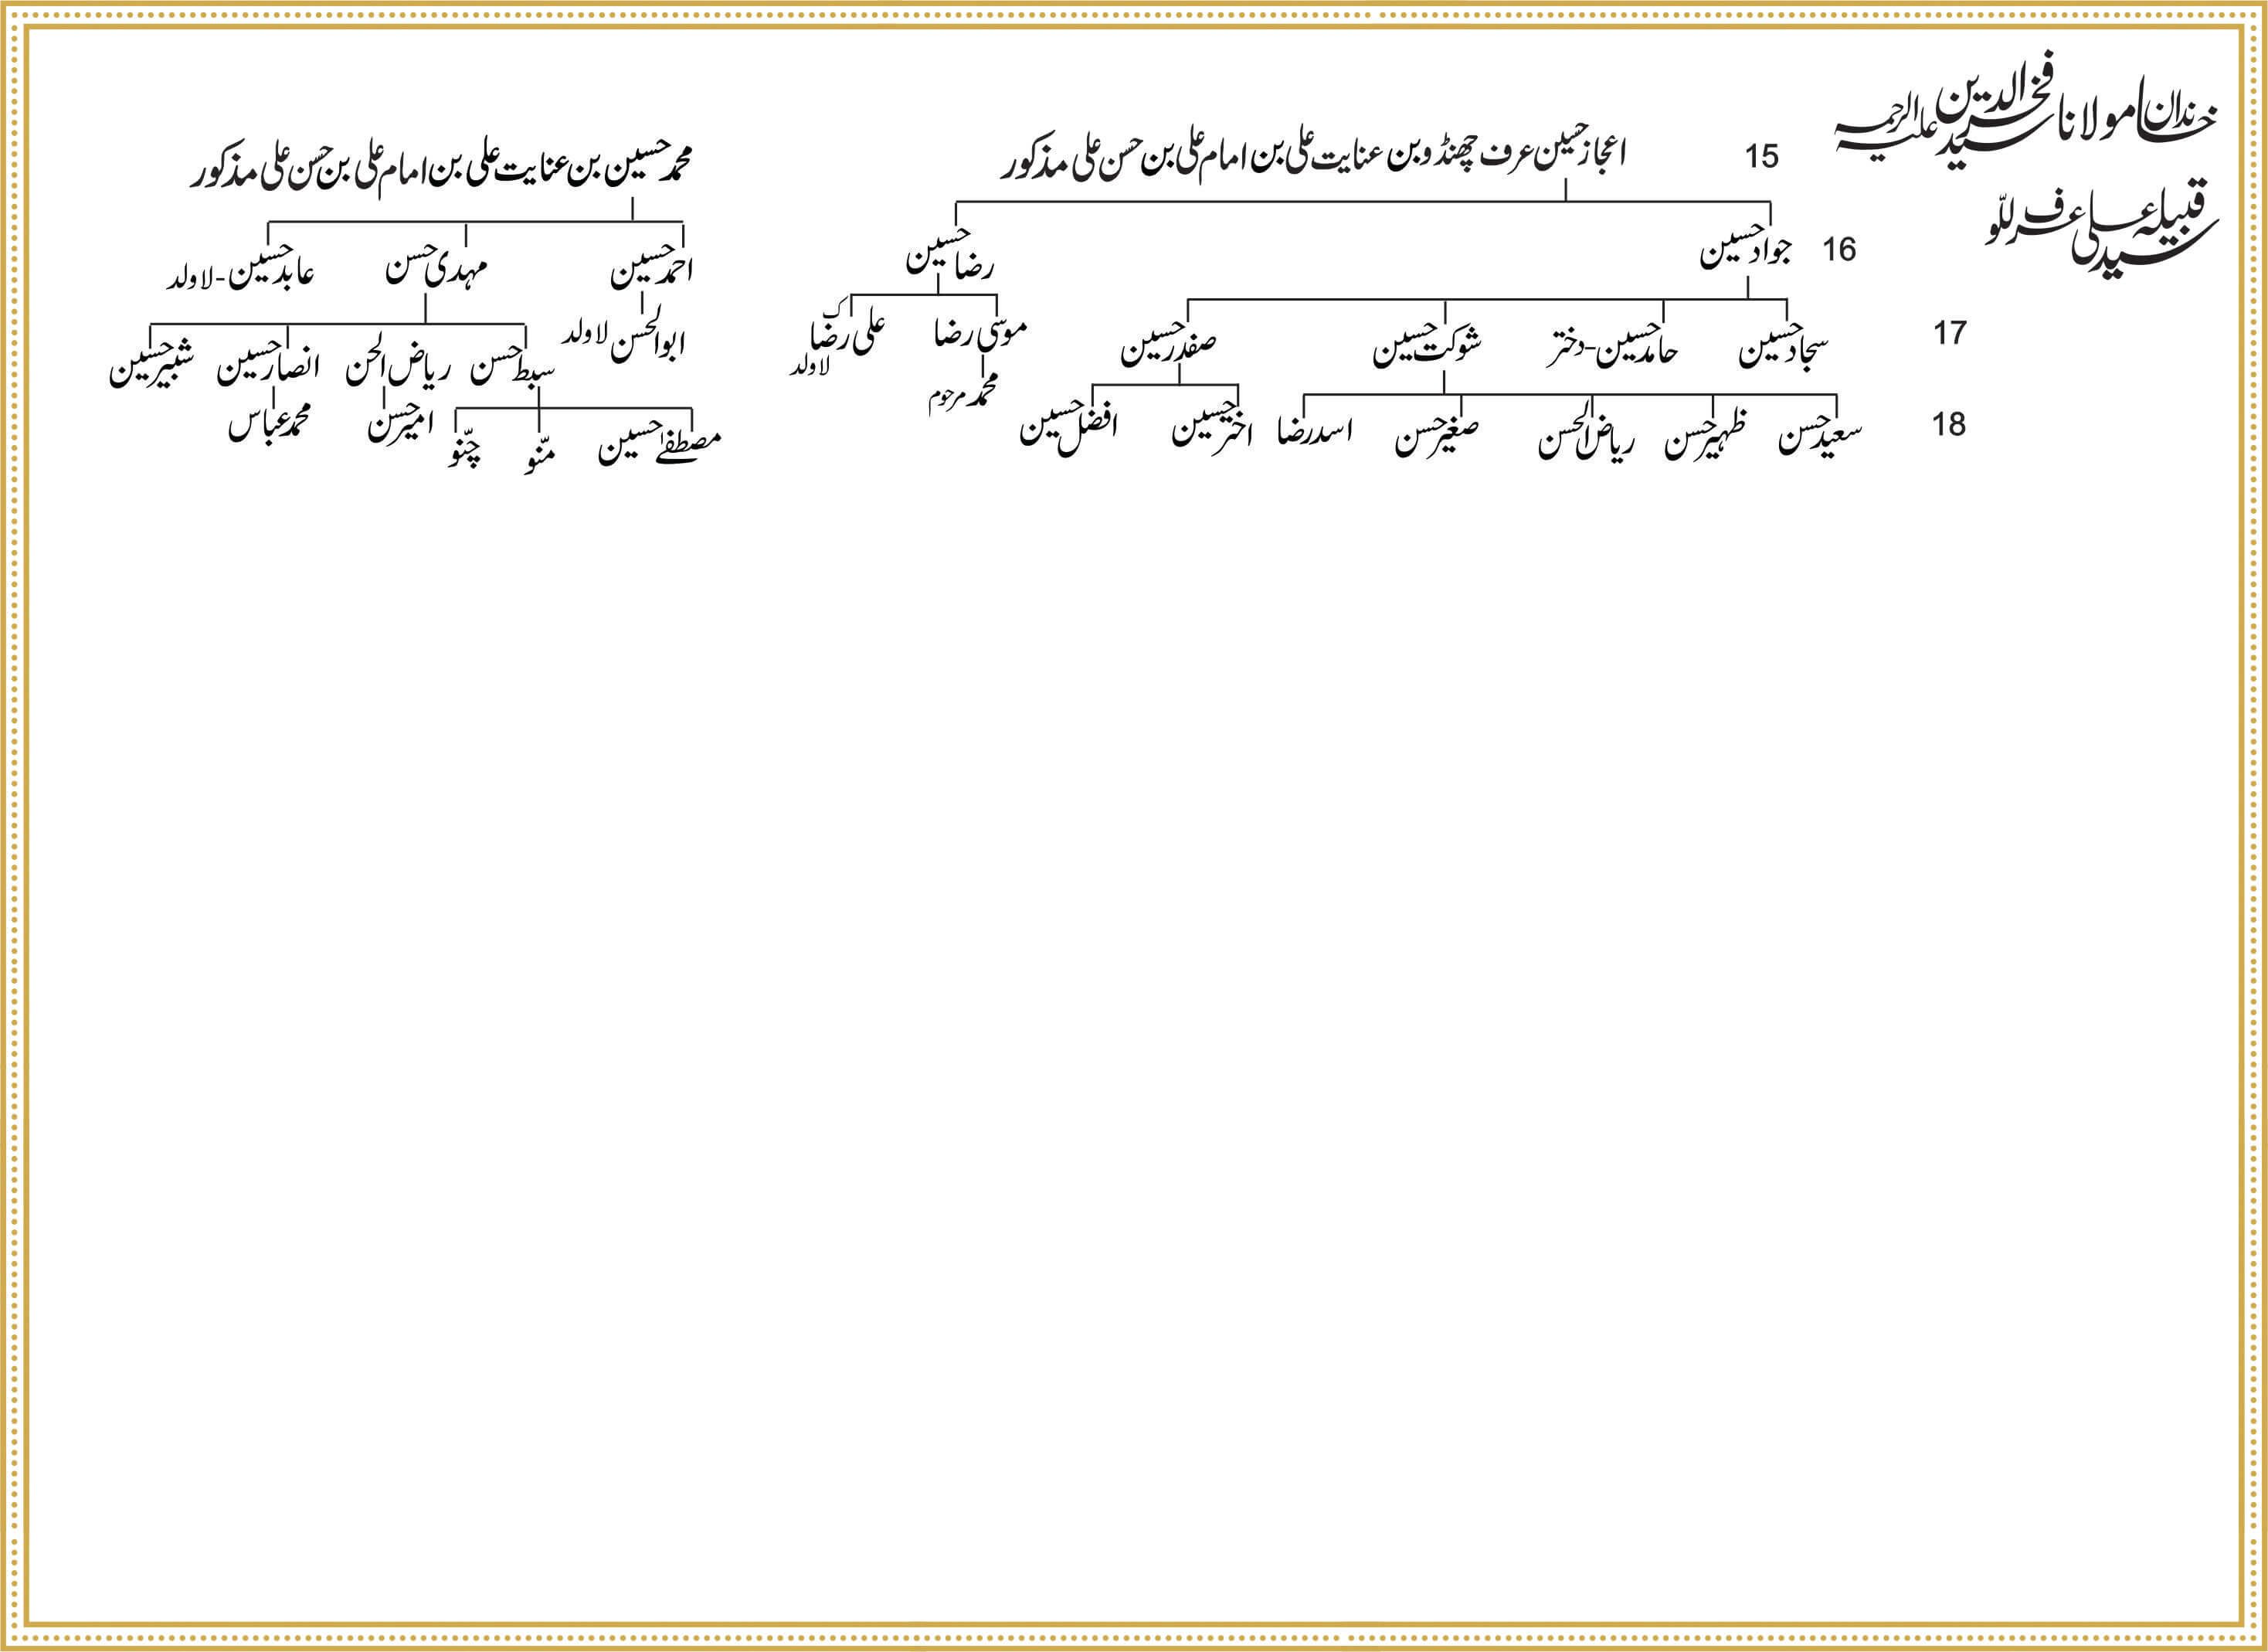 خاندان مولانا سید فخرالدین علیہ الرحمہ
قبیلہ سید علی عرف للّو
15 اعجاز حسین عرف چھنڈو بن عنایت علی بن امام علی بن حسن علی مذکور
محمد حسین بن عنایت علی بن امام علی بن حسن علی مذکور
16 جواد حسین رضا حسین
احمد حسین مہدی حسن عابد حسین - لاولد
17 سجاد حسین حامد حسین - دختر شوکت حسین صفدر حسین موسی رضا علی رضا
لاولد
ابوالحسن لاولد
سبط حسن ریاض الحسن انصار حسین شبیر حسین
18 سعید حسن ظہیر حسن ریاض الحسن صغیر حسن اسد رضا اختر حسین افضل حسین محمد مرحوم
مصطفےٰ حسین منّو چنّو امیر حسن محمد عباس